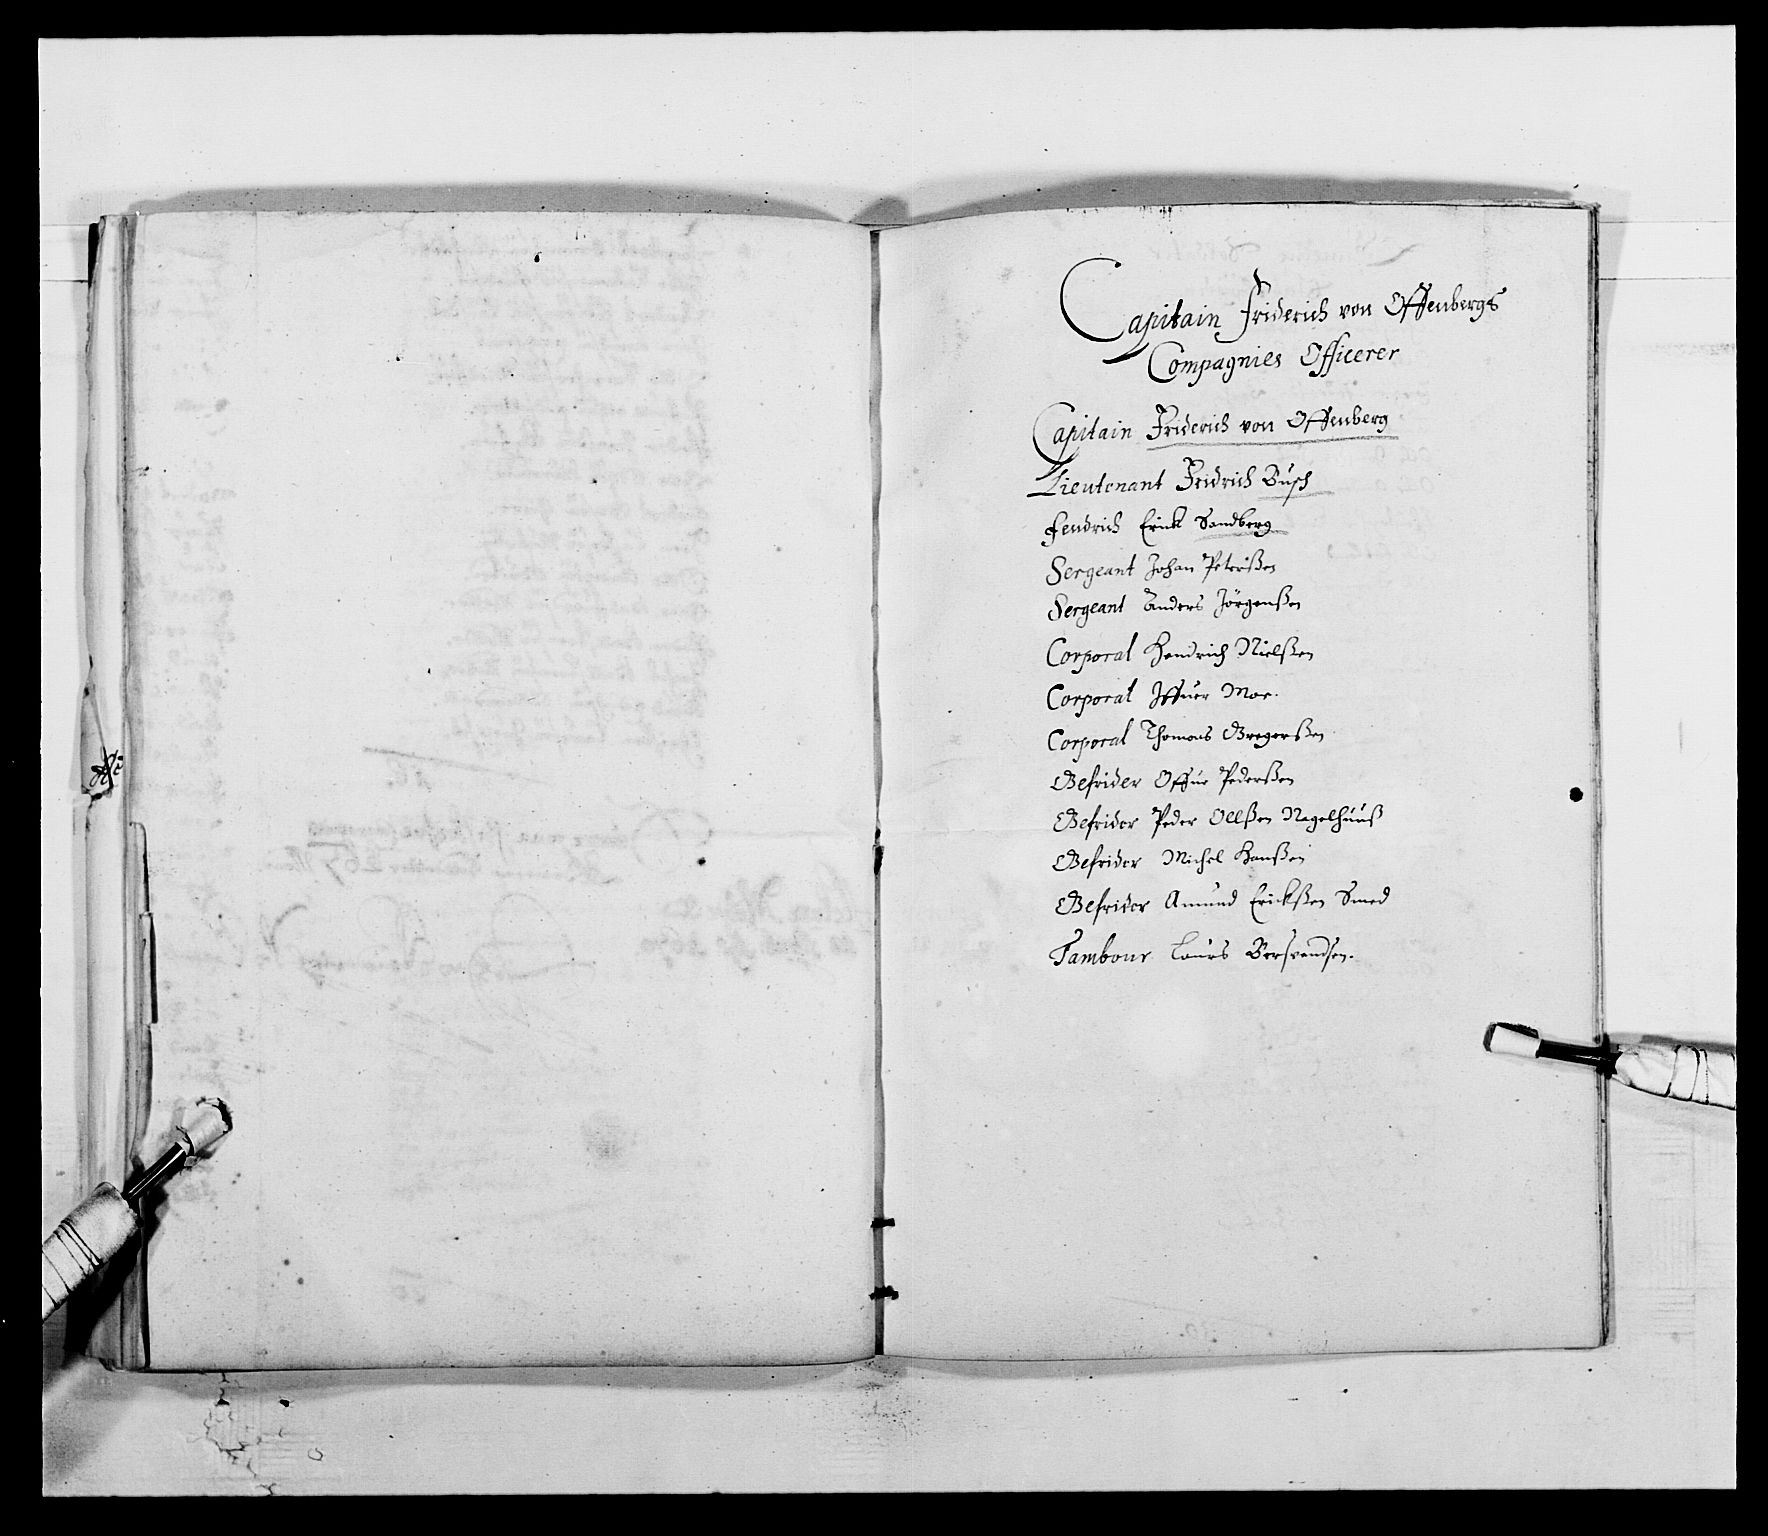 Capitain Friderich von Offenbergs
Compagnies Officerer
Capitain Friderich von Offenberg
Lieutenant Fridrich Busch
Fendrich Erick Sandberg
Sergeant Johan Peterßen
Sergeant Anders Jörgenßen
Corporal Hendrich Nielßen
Corporal Iffuer Moe.
Corporal Thomas Gregerßen
Gefrider Offue Pederßen
Gefrider Peder Ollßen Nagelhuuß
Gefrider Michel Hanßen
Gefrider Amund Erickßen Smed
Tambour Laurs Bersvendsen.